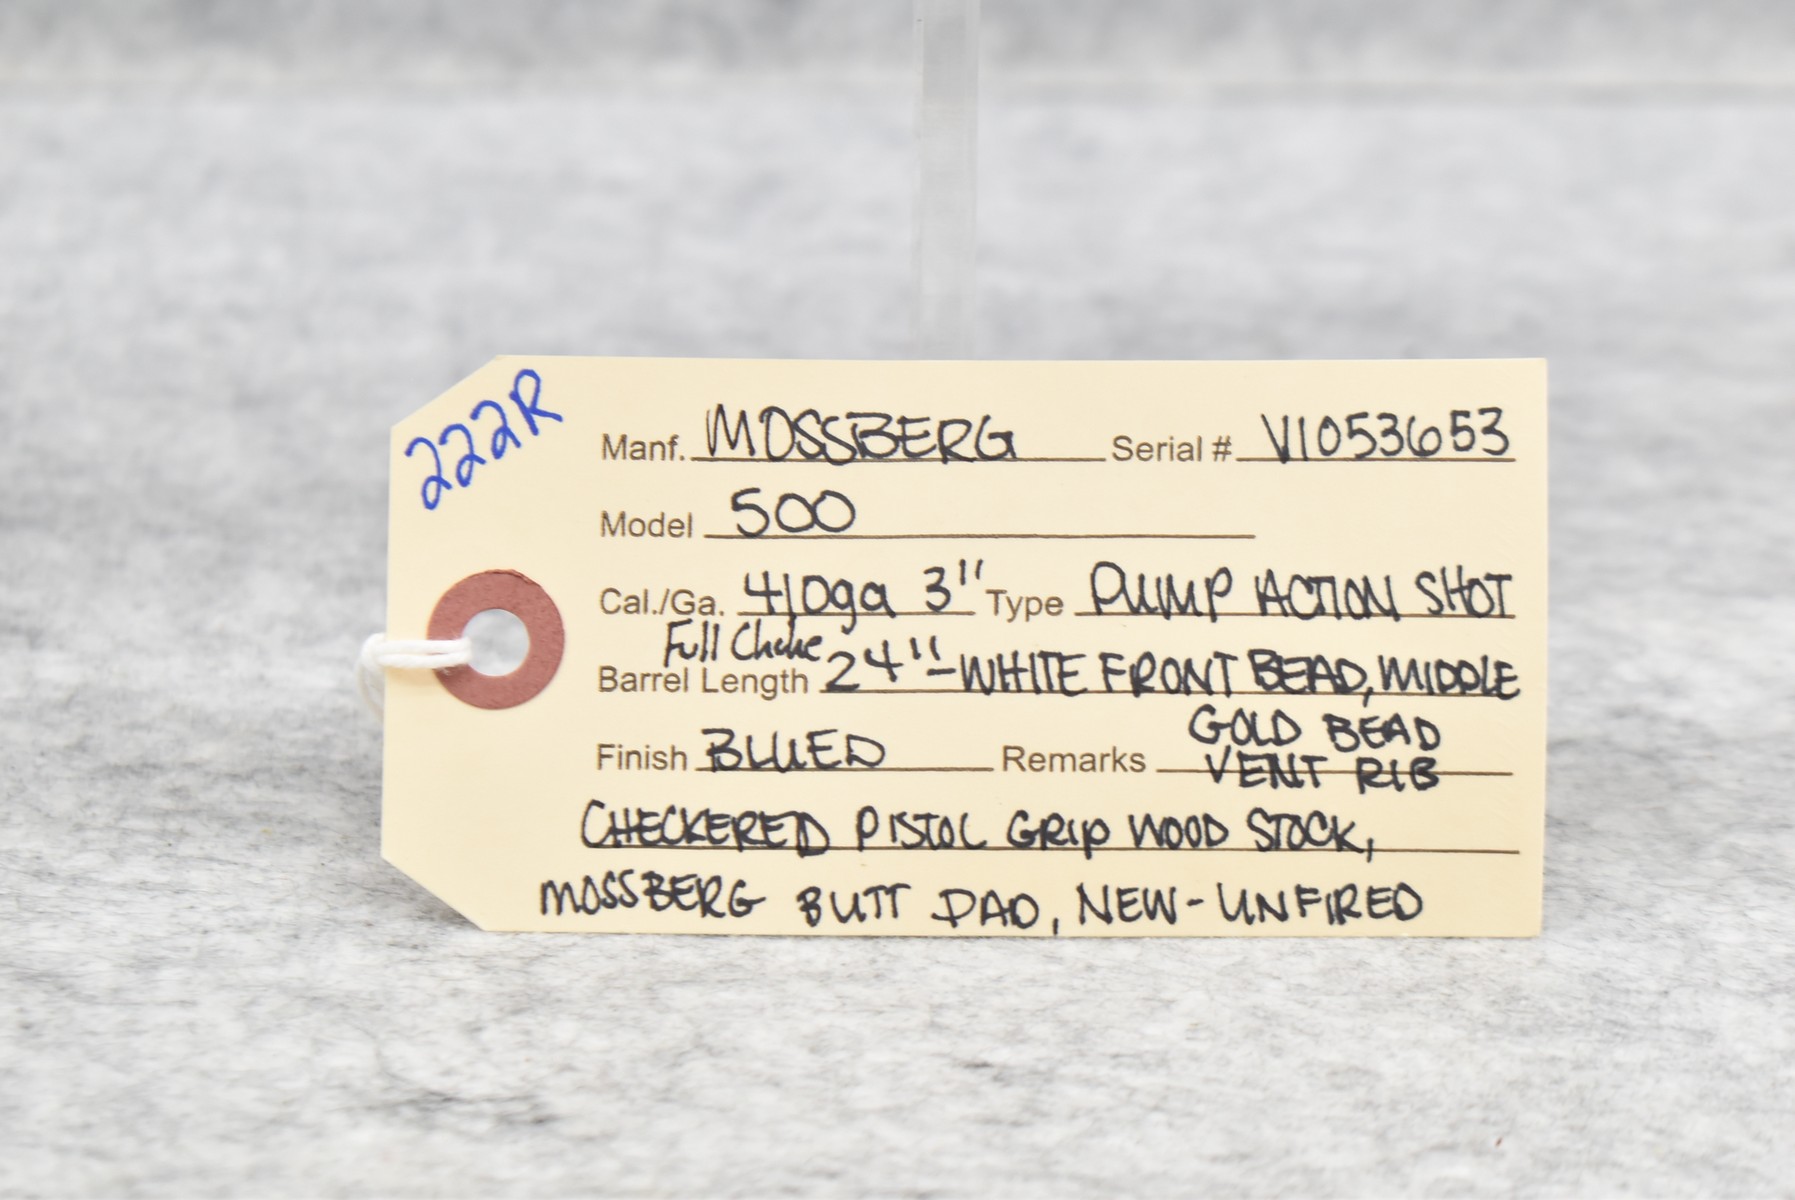 222R
Manf. MOSSBERG Serial # V1053653
Model 500
Cal./Ga. 410ga 3" Type PUMP ACTION SHOT
Full Choke
Barrel Length 24"-WHITE FRONT BEAD, MIDDLE
GOLD BEAD
Finish BLUED Remarks VENT RIB
CHECKERED PISTOL GRIP WOOD STOCK,
MOSSBERG BUTT PAD, NEW-UNFIRED